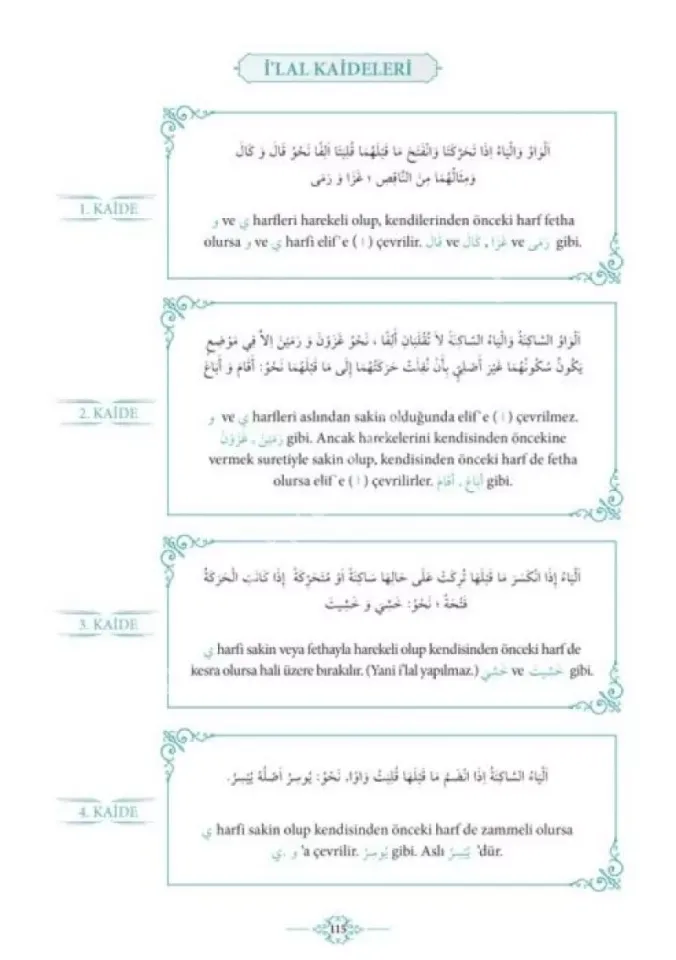 İ'LAL KAİDELERİ
1. KAİDE
اَلْوَاوُ وَالْيَاءُ إِذَا تَحَرَّكَتَا وَانْفَتَحَ مَا قَبْلَهُمَا قُلِبَتَا اَلِفًا نَحْوُ قَالَ وَ كَالَ
وَمِثَالُهُمَا مِنَ النَّاقِصِ ؛ غَزَا وَ رَمَى
و ve ي harfleri harekeli olup, kendilerinden önceki harf fetha
olursa و ve ي harfi elif`e ( ا ) çevrilir. قَالَ ve كَالَ , غَزَا ve رَمَى gibi.
2. KAİDE
اَلْوَاوُ السَّاكِنَةُ وَالْيَاءُ السَّاكِنَةُ لاَ تُقْلَبَانِ أَلِفًا ، نَحْوُ غَزَوْنَ وَ رَمَيْنَ اِلاَّ فِي مَوْضِعٍ
يَكُونُ سُكُونُهُمَا غَيْرَ أَصْلِيٍّ بِأَنْ نُقِلَتْ حَرَكَتُهُمَا إِلَى مَا قَبْلَهُمَا نَحْوُ: أَقَامَ وَ أَبَاعَ
و ve ي harfleri aslından sakin olduğunda elif`e ( ا ) çevrilmez.
رَمَيْنَ , غَزَوْنَ gibi. Ancak harekelerini kendisinden öncekine
vermek suretiyle sakin olup, kendisinden önceki harf de fetha
olursa elif`e ( ا ) çevrilirler. أَبَاعَ , أَقَامَ gibi.
3. KAİDE
اَلْيَاءُ إِذَا انْكَسَرَ مَا قَبْلَهَا تُرِكَتْ عَلَى حَالِهَا سَاكِنَةً اَوْ مُتَحَرِّكَةً إِذَا كَانَتِ الْحَرَكَةُ
فَتْحَةً ؛ نَحْوُ: خَشِيَ وَ خَشِيتَ
ي harfi sakin veya fethayla harekeli olup kendisinden önceki harf de
kesra olursa hali üzere bırakılır. (Yani i'lal yapılmaz.) خَشِيَ ve خَشِيتَ gibi.
4. KAİDE
اَلْيَاءُ السَّاكِنَةُ إِذَا انْضَمَّ مَا قَبْلَهَا قُلِبَتْ وَاوًا، نَحْوُ: يُوسِرُ اَصْلُهُ يُيْسِرُ.
ي harfi sakin olup kendisinden önceki harf de zammeli olursa
ي. و 'a çevrilir. يُوسِرُ gibi. Aslı يُيْسِرُ 'dür.
115